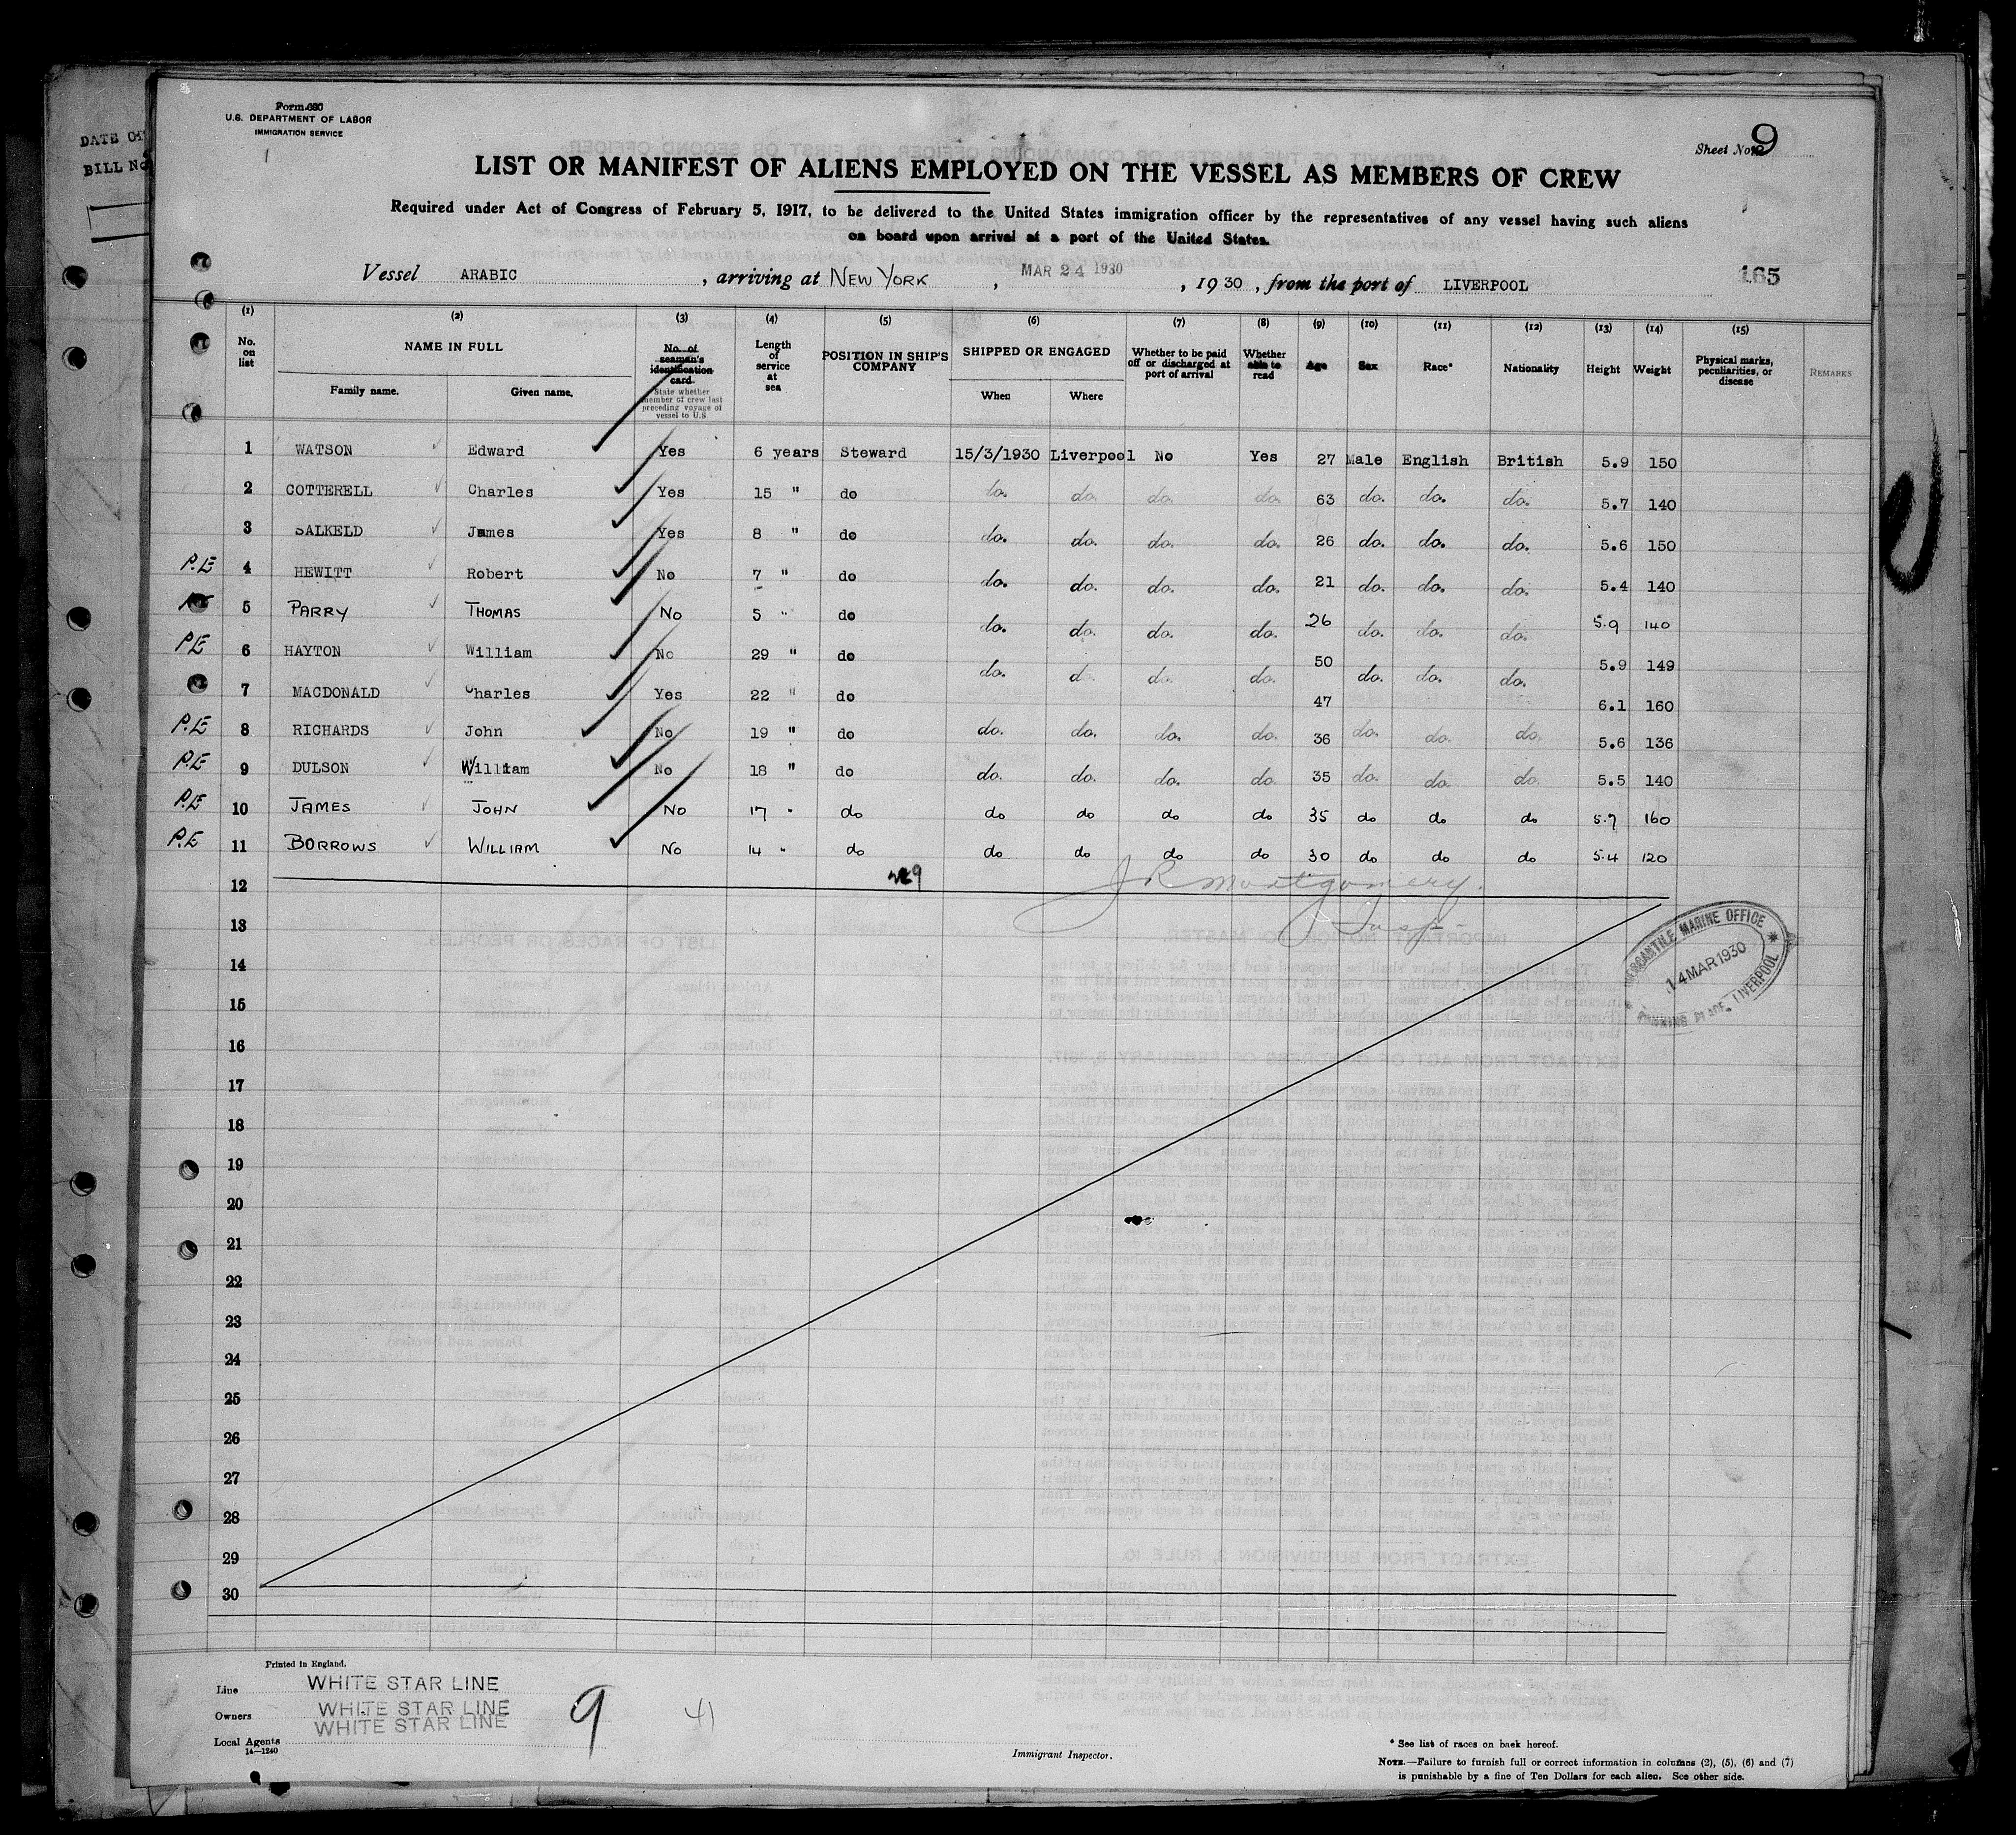 DATE OF
BILL No
Form 680
U.S. DEPARTMENT OF LABOR
IMMIGRATION SERVICE
Sheet No. 9
LIST OR MANIFEST OF ALIENS EMPLOYED ON THE VESSEL AS MEMBERS OF CREW
Required under Act of Congress of February 5, 1917, to be delivered to the United States immigration officer by the representatives of any vessel having such aliens
on board upon arrival at a port of the United States.
Vessel ARABIC, arriving at NEW YORK, MAR 24 1930, 1930, from the port of LIVERPOOL
165
(1) (2) (3) (4) (5) (6) (7) (8) (9) (10) (11) (12) (13) (14) (15)
No. on list
NAME IN FULL
Family name. Given name.
No. of seaman's identification card.
State whether member of crew last preceding voyage of vessel to U.S
Length of service at sea
POSITION IN SHIP'S COMPANY
SHIPPED OR ENGAGED
When Where
Whether to be paid off or discharged at port of arrival
Whether able to read
Age Sex Race* Nationality Height Weight
Physical marks, peculiarities, or disease
REMARKS
1 WATSON Edward Yes 6 years Steward 15/3/1930 Liverpool No Yes 27 Male English British 5.9 150
2 COTTERELL Charles Yes 15 " do do. do. do. do. 63 do. do. do. 5.7 140
3 SALKELD James Yes 8 " do do. do. do. do. 26 do. do. do. 5.6 150
P.E 4 HEWITT Robert No 7 " do do. do. do. do. 21 do. do. do. 5.4 140
5 PARRY THOMAS No 5 " do do. do. do. do. 26 do. do. do. 5.9 140
P.E 6 HAYTON William No 29 " do do. do. do. do. 50 do. do. do. 5.9 149
7 MACDONALD Charles Yes 22 " do 47 6.1 160
P.E 8 RICHARDS John No 19 " do do. do. do. do. 36 do. do. do. 5.6 136
P.E 9 DULSON William No 18 " do do. do. do. do. 35 do. do. do. 5.5 140
P.E 10 JAMES JOHN No 17 " do do do do do 35 do do do 5.7 160
P.E 11 BORROWS WILLIAM No 14 " do do do do do 30 do do do 5.4 120
12
J R Montgomery.
13
Insp-
MERCANTILE MARINE OFFICE
14 MAR 1930
CANNING PLACE, LIVERPOOL
14
15
16
17
18
19
20
21
22
23
24
25
26
27
28
29
30
Printed in England.
Line WHITE STAR LINE
Owners WHITE STAR LINE
Local Agents WHITE STAR LINE
14—1240
9
41
Immigrant Inspector.
* See list of races on back hereof.
NOTE.—Failure to furnish full or correct information in columns (2), (5), (6) and (7)
is punishable by a fine of Ten Dollars for each alien. See other side.